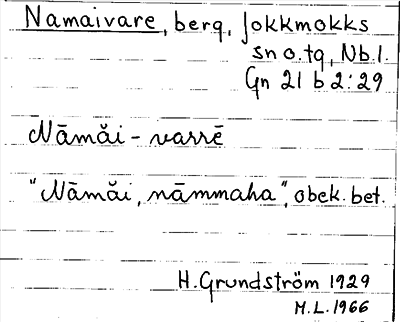 Namaivare, berg, Jokkmokks
sn o. tg, Nb. l.
Gn 21 b 2:29
Nāmăi - varrē
"Nāmăi, nāmmaha", obek. bet.
H. Grundström 1929
M.L. 1966